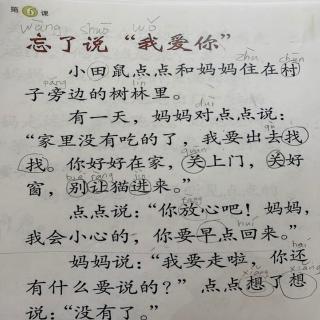 第6课
wàng shuō wǒ
忘了说“我爱你”
zhù cūn
小田鼠点点和妈妈住在村
páng
子旁边的树林里。
duì
有一天，妈妈对点点说：
“家里没有吃的了，我要出去找
guān
找。你好好在家，关上门，关好
bié ràng jìn
窗，别让猫进来。”
fàng
点点说：“你放心吧！妈妈，
huí
我会小心的，你要早点回来。”
hái
妈妈说：“我要走啦，你还
xiǎng xiǎng
有什么要说的？”点点想了想
说：“没有了。”